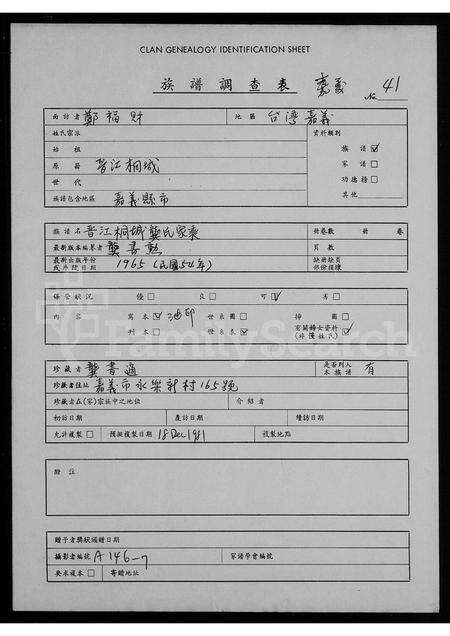 CLAN GENEALOGY IDENTIFICATION SHEET
族譜調查表 嘉義 No. 41
面訪者 鄭福財 地區 台灣嘉義
姓氏宗派 資料類別
始祖 族譜 ☑
原籍 晉江桐城 家譜 □
世代 功德榜 □
族譜包含地區 嘉義縣市 其他
族譜名 晉江桐城龔氏家乘 冊卷數 冊 卷
最新版本編纂者 龔書勲 頁數
最新出版年份 1965 (民國54年) 缺冊缺頁
或刋號日期 部份損壞
保管狀況 優 □ 良 □ 可 ☑ 劣 □
內容 寫本 ☑ 油印 世系圖 □ 插圖 □
刋本 □ 世系表 ☑ 有關婦女資料 ☑
(非僅姓氏)
珍藏者 龔書通 是否列入 有
本族譜
珍藏者住址 嘉義市永樂新村165號
珍藏者在(家)宗族中之地位 介紹者
初訪日期 應訪日期 續訪日期
允許複製 □ 預擬複製日期 18 Dec 1981 複製地點
證註
贈予者獎狀頒贈日期
攝影者編號 A146-7 家譜學會編號
要求複本 □ 寄贈地址
FamilySearch